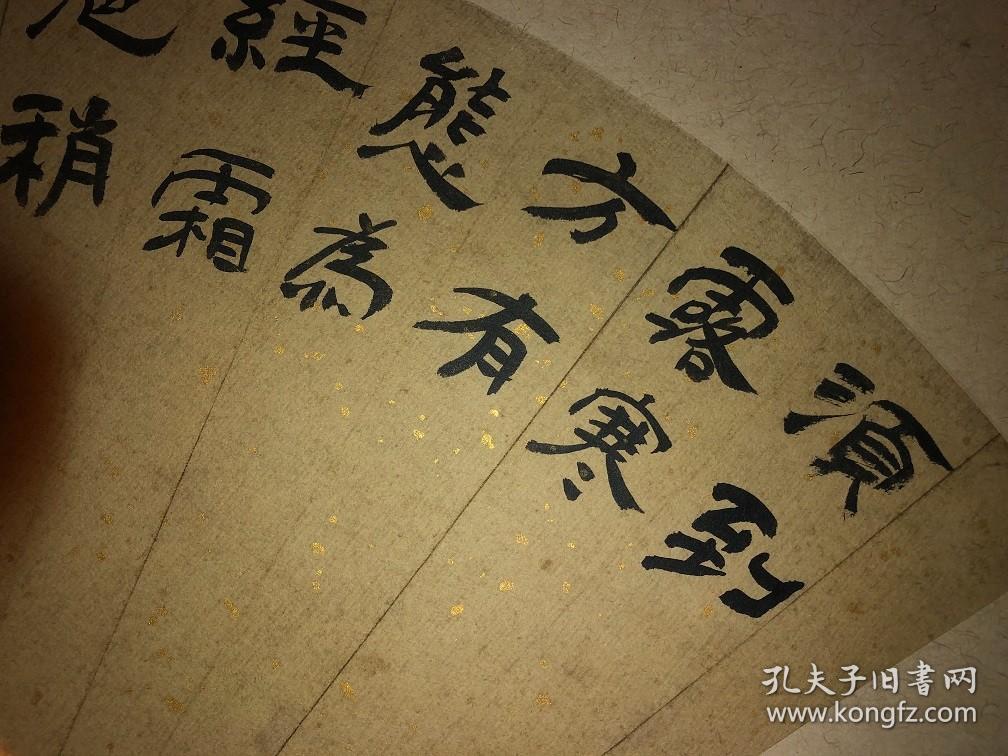 須到
露寒
方有
態為
經霜
稍
孔夫子旧書网
www.kongfz.com